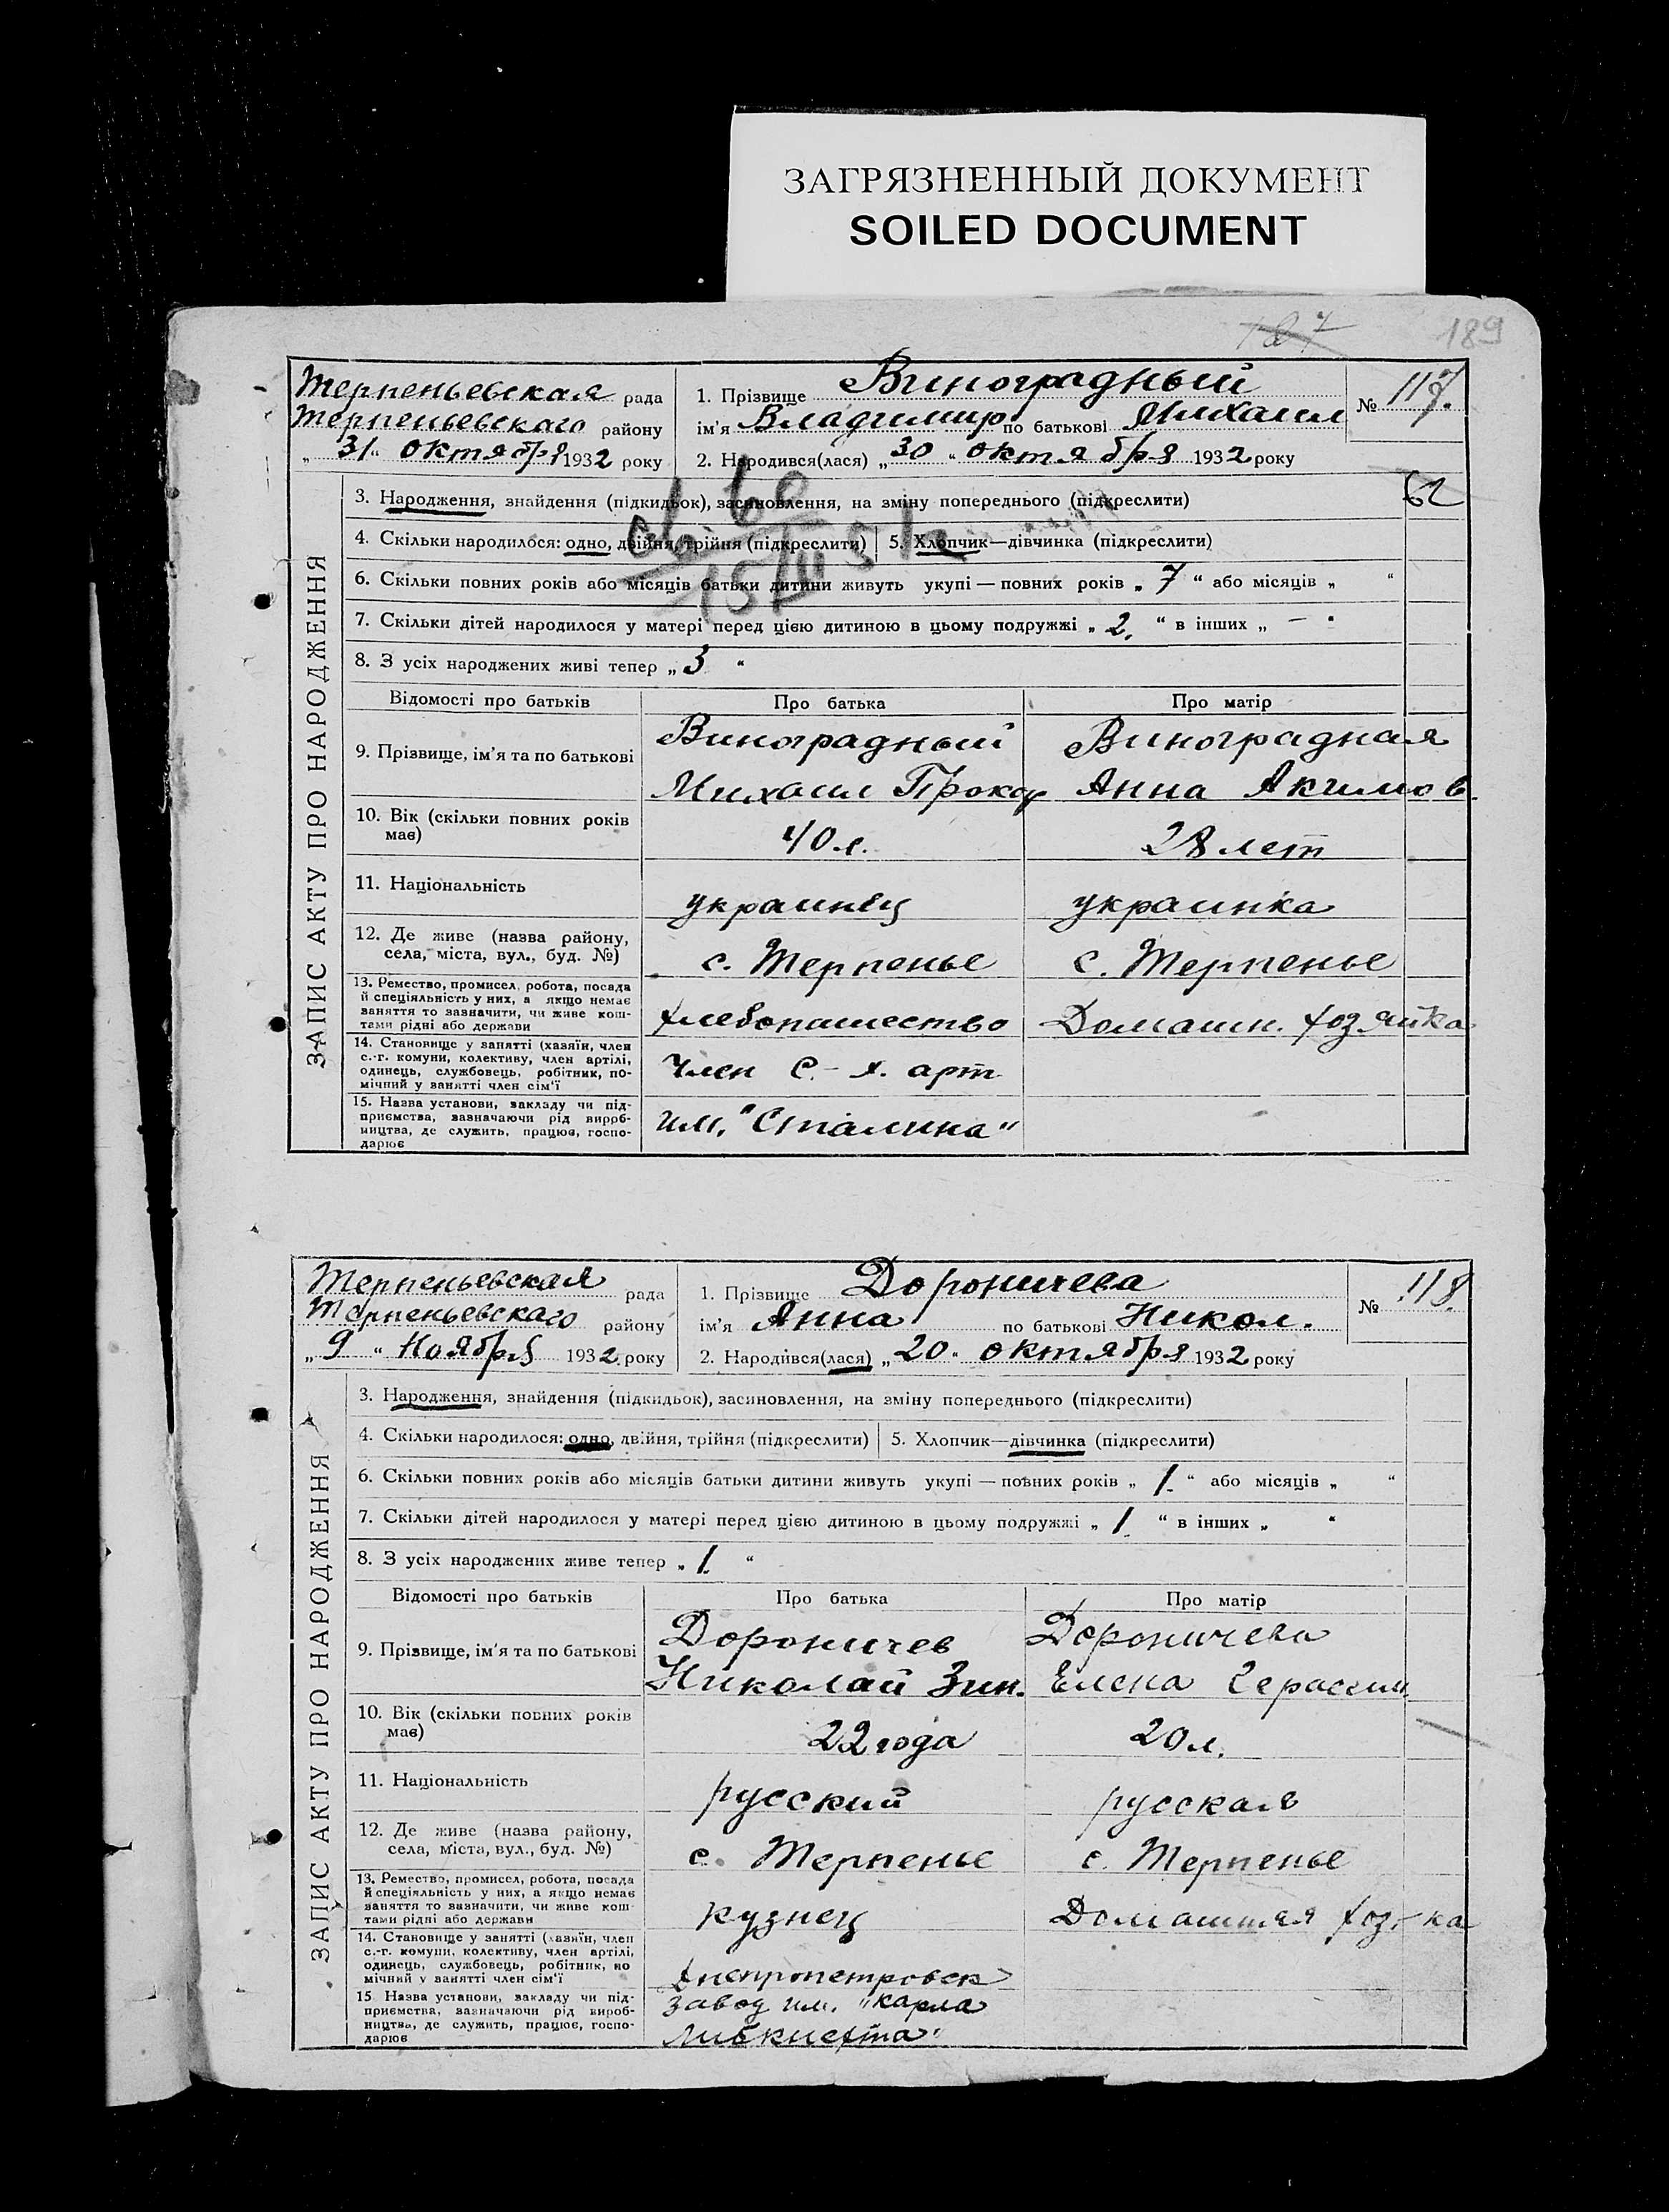 ЗАГРЯЗНЕННЫЙ ДОКУМЕНТ
SOILED DOCUMENT
189
Терпеньевская рада
Терпеньевского району
„31“ октября 1932 року
1. Прізвище Виноградный
ім'я Владимир по батькові Михаил
2. Народився(лася) „30“ октября 1932 року
№ 117.
62
ЗАПИС АКТУ ПРО НАРОДЖЕННЯ
3. Народження, знайдення (підкидьок), засиновлення, на зміну попереднього (підкреслити)
4. Скільки народилося: одно, двійня, трійня (підкреслити) 5. Хлопчик—дівчинка (підкреслити)
6. Скільки повних років або місяців батьки дитини живуть укупі — повних років „7“ або місяців „ “
7. Скільки дітей народилося у матері перед цією дитиною в цьому подружжі „2.“ в інших „ – “
8. З усіх народжених живі тепер „3“
Відомості про батьків Про батька Про матір
9. Прізвище, ім'я та по батькові
Виноградный Виноградная
Михаил Прокоф Анна Акимов.
10. Вік (скільки повних років має)
40 л. 28 лет
11. Національність
украинец украинка
12. Де живе (назва району,
села, міста, вул., буд. №)
с. Терпенье с. Терпенье
13. Ремество, промисел, робота, посада
й спеціяльність у них, а якщо немає
заняття то зазначити, чи живе кош-
тами рідні або держави
хлебопашество Домашн. хозяйка
14. Становище у занятті (хазяїн, член
с.-г. комуни, колективу, член артілі,
одинець, службовець, робітник, по-
мічний у занятті член сім'ї
Член с.-х. арт
15. Назва установи, закладу чи під-
приємства, зазначаючи рід вироб-
ництва, де служить, працює, госпо-
дарює
им. "Сталина"
Терпеньевская рада
Терпеньевского району
„9“ Ноября 1932 року
1. Прізвище Дороничева
ім'я Анна по батькові Никол.
2. Народився(лася) „20“ октября 1932 року
№ 118.
ЗАПИС АКТУ ПРО НАРОДЖЕННЯ
3. Народження, знайдення (підкидьок), засиновлення, на зміну попереднього (підкреслити)
4. Скільки народилося: одно, двійня, трійня (підкреслити) 5. Хлопчик—дівчинка (підкреслити)
6. Скільки повних років або місяців батьки дитини живуть укупі — повних років „1.“ або місяців „ “
7. Скільки дітей народилося у матері перед цією дитиною в цьому подружжі „1.“ в інших „ “
8. З усіх народжених живе тепер „1.“
Відомості про батьків Про батька Про матір
9. Прізвище, ім'я та по батькові
Дороничев Дороничева
Николай Зин. Елена Герасим.
10. Вік (скільки повних років має)
22 года 20 л.
11. Національність
русский русская
12. Де живе (назва району,
села, міста, вул., буд. №)
с. Терпенье с. Терпенье
13. Ремество, промисел, робота, посада
й спеціяльність у них, а якщо немає
заняття то зазначити, чи живе кош-
тами рідні або держави
кузнец Домашняя хоз-ка
14. Становище у занятті (хазяїн, член
с.-г. комуни, колективу, член артілі,
одинець, службовець, робітник, по
мічний у занятті член сім'ї
Днепропетровск
15 Назва установи, закладу чи під-
приємства, зазначаючи рід вироб-
ництва, де служить, працює, госпо-
дарює
завод им. "Карла
Либкнехта"